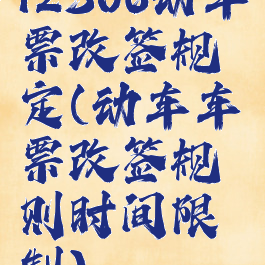 12306动车
票改签规
定(动车车
票改签规
则时间限
制)